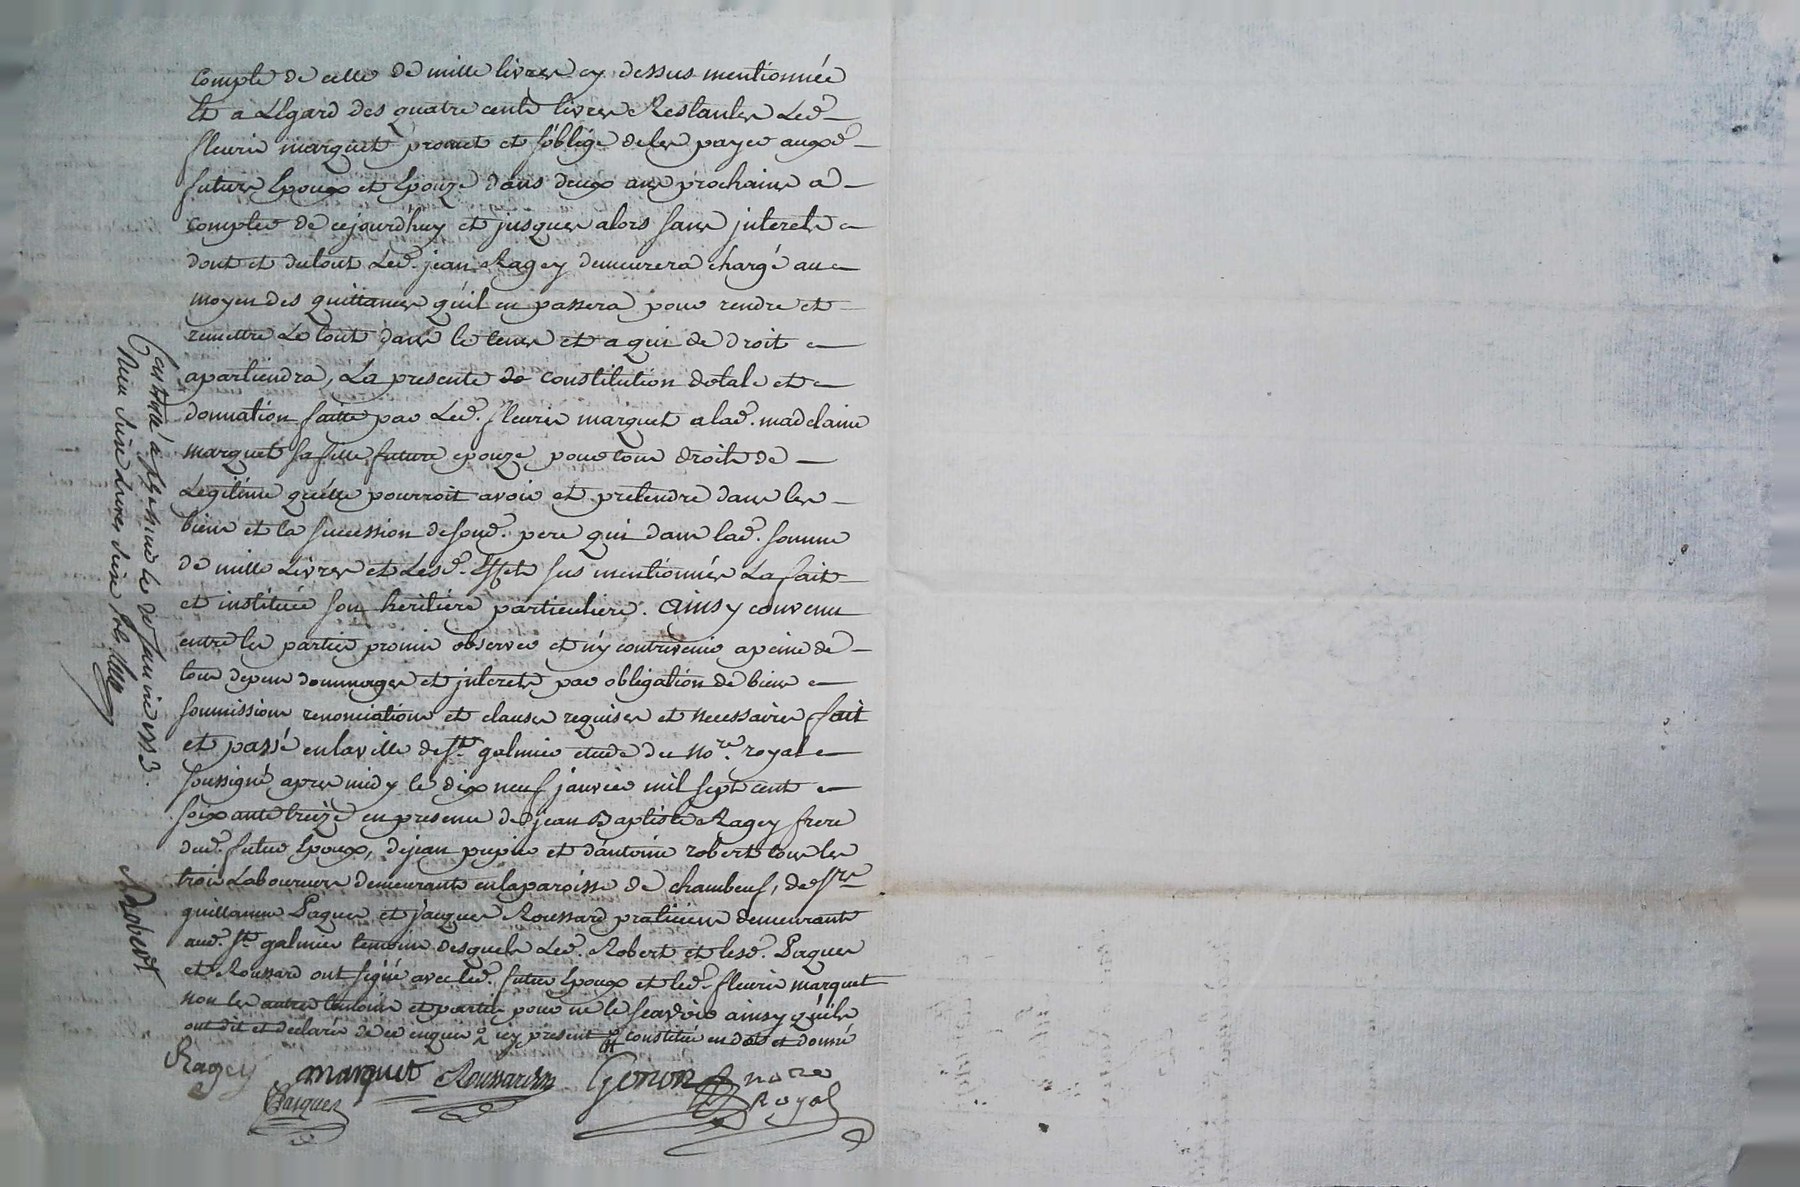 compte de celle de mille livres cy dessus mentionnée
Et a L'Egard des quatre cents livres Restantes Led.
fleurie marquet promet et s'oblige deles payer auxd.
futurs Epoux et Epouze dans deux ans prochains a
compter de cejourd'huy et jusques alors sans jnterets
dont et dutout Led. jean Ragey demeurera chargé au
moyen des quittances qu'il en passera pour rendre et
remettre Le tout dans le tems et a qui de droit
apartiendra, La presente de constitution dotale et
donnation faitte par Led. fleurie marquet alad. madelaine
marquet sa fille future epouze pour tous droits de
Legitime qu'elle pourroit avoir et pretendre dans les
biens et la succession desond. pere qui dans lad. somme
de mille Livres et Lesd. Effets sus mentionnés La fait
et instituée son heritiere particuliere. Ainsy convenu
entre les parties promis observer et n'y contrevenir apeine de
tous depens dommages et jnterets par obligation de biens
soumissions renonciations et clauses requises et necessaires fait
et passé enlaville de St. galmier etude du no.re royal
soussigné apres midy le dix neuf janvier mil sept cent
soixante treize en presence de jean Baptiste Ragey frere
dud. futur Epoux, de jean pupier et d'antoine robert tous les
trois Laboureurs demeurants enlaparoisse de chambeuf, de srs
guillaume Paques et jacques Roussard praticiens demeurants
aud. St. galmier temoins desquels Led. Robert et lesd. Paques
et Roussard ont signé avec led. futur Epoux et led. fleurie marquet
non les autres temoins et parties pour ne le scavoir ainsy qu'ils
ont dit et declarés de ce enquis icy present constitué en dots et donné
Ragey marquet Roussard Genon nore
Paques Royal
Robert
le janvier 1773.